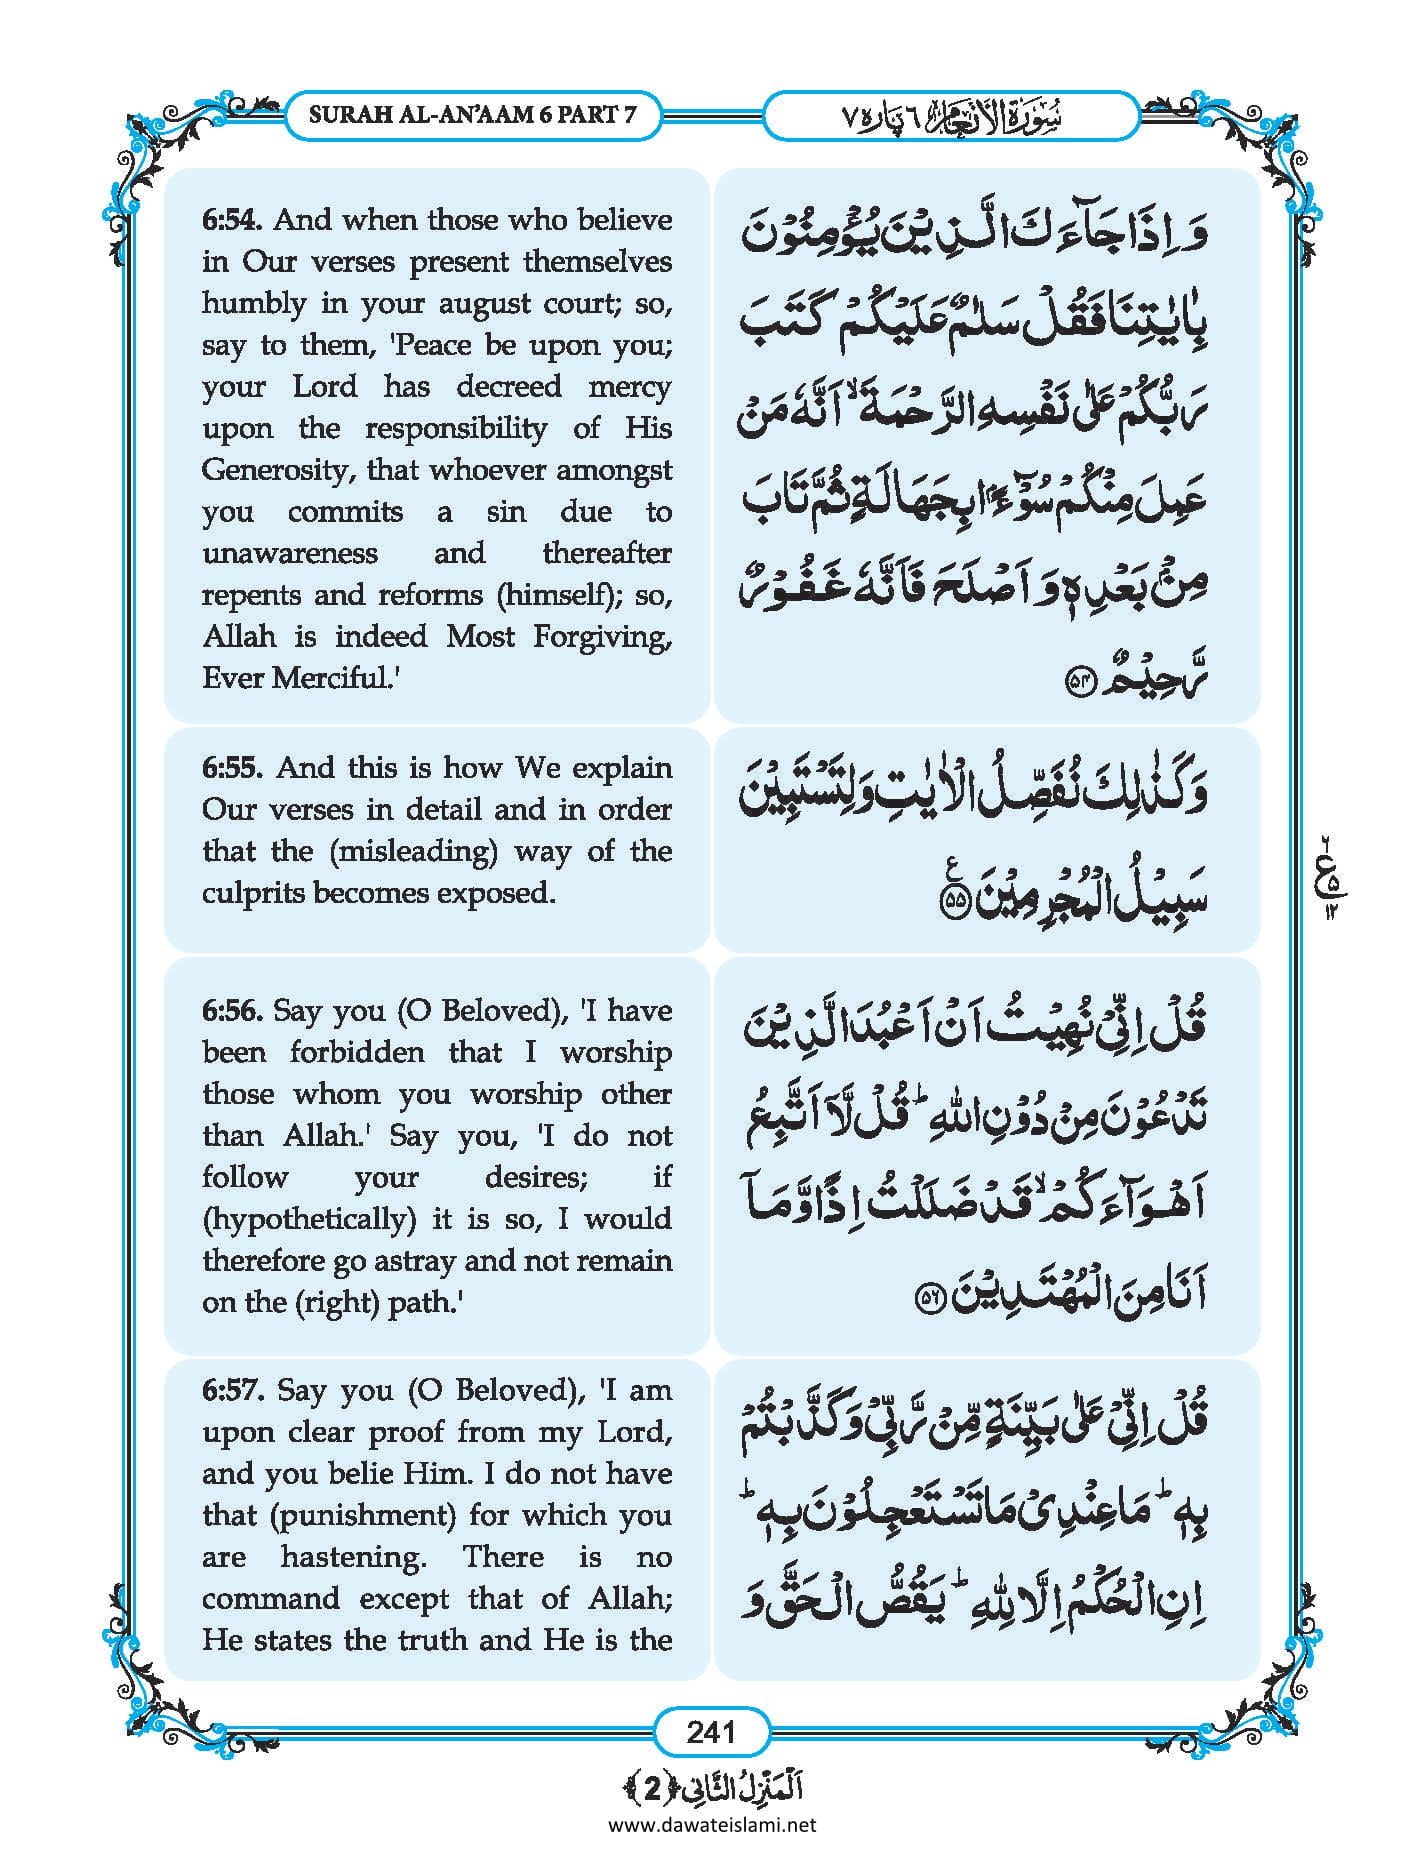 SURAH AL-AN’AAM 6 PART 7
سُوْرَةُ الْاَنْعَام ٦ پارہ ٧
6:54. And when those who believe
in Our verses present themselves
humbly in your august court; so,
say to them, 'Peace be upon you;
your Lord has decreed mercy
upon the responsibility of His
Generosity, that whoever amongst
you commits a sin due to
unawareness and thereafter
repents and reforms (himself); so,
Allah is indeed Most Forgiving,
Ever Merciful.'
وَ اِذَا جَآءَكَ الَّذِیْنَ یُؤْمِنُوْنَ
بِاٰیٰتِنَا فَقُلْ سَلٰمٌ عَلَیْكُمْ كَتَبَ
رَبُّكُمْ عَلٰی نَفْسِهِ الرَّحْمَةَ ۙ اَنَّهٗ مَنْ
عَمِلَ مِنْكُمْ سُوْٓءًۢا بِجَهَالَةٍ ثُمَّ تَابَ
مِنْۢ بَعْدِهٖ وَ اَصْلَحَ فَاَنَّهٗ غَفُوْرٌ
رَّحِیْمٌ ﴿۵۴﴾
6:55. And this is how We explain
Our verses in detail and in order
that the (misleading) way of the
culprits becomes exposed.
وَ كَذٰلِكَ نُفَصِّلُ الْاٰیٰتِ وَ لِتَسْتَبِیْنَ
سَبِیْلُ الْمُجْرِمِیْنَ ﴿۵۵﴾ ع
٦
ع ۵
١٢
6:56. Say you (O Beloved), 'I have
been forbidden that I worship
those whom you worship other
than Allah.' Say you, 'I do not
follow your desires; if
(hypothetically) it is so, I would
therefore go astray and not remain
on the (right) path.'
قُلْ اِنِّیْ نُهِیْتُ اَنْ اَعْبُدَ الَّذِیْنَ
تَدْعُوْنَ مِنْ دُوْنِ اللّٰهِ ؕ قُلْ لَّاۤ اَتَّبِعُ
اَهْوَآءَكُمْ ۙ قَدْ ضَلَلْتُ اِذًا وَّ مَاۤ
اَنَا مِنَ الْمُهْتَدِیْنَ ﴿۵۶﴾
6:57. Say you (O Beloved), 'I am
upon clear proof from my Lord,
and you belie Him. I do not have
that (punishment) for which you
are hastening. There is no
command except that of Allah;
He states the truth and He is the
قُلْ اِنِّیْ عَلٰی بَیِّنَةٍ مِّنْ رَّبِّیْ وَ كَذَّبْتُمْ
بِهٖ ؕ مَا عِنْدِیْ مَا تَسْتَعْجِلُوْنَ بِهٖ ؕ
اِنِ الْحُكْمُ اِلَّا لِلّٰهِ ؕ یَقُصُّ الْحَقَّ وَ
241
اَلْمَنْزِلُ الثَّانِی ﴿2﴾
www.dawateislami.net